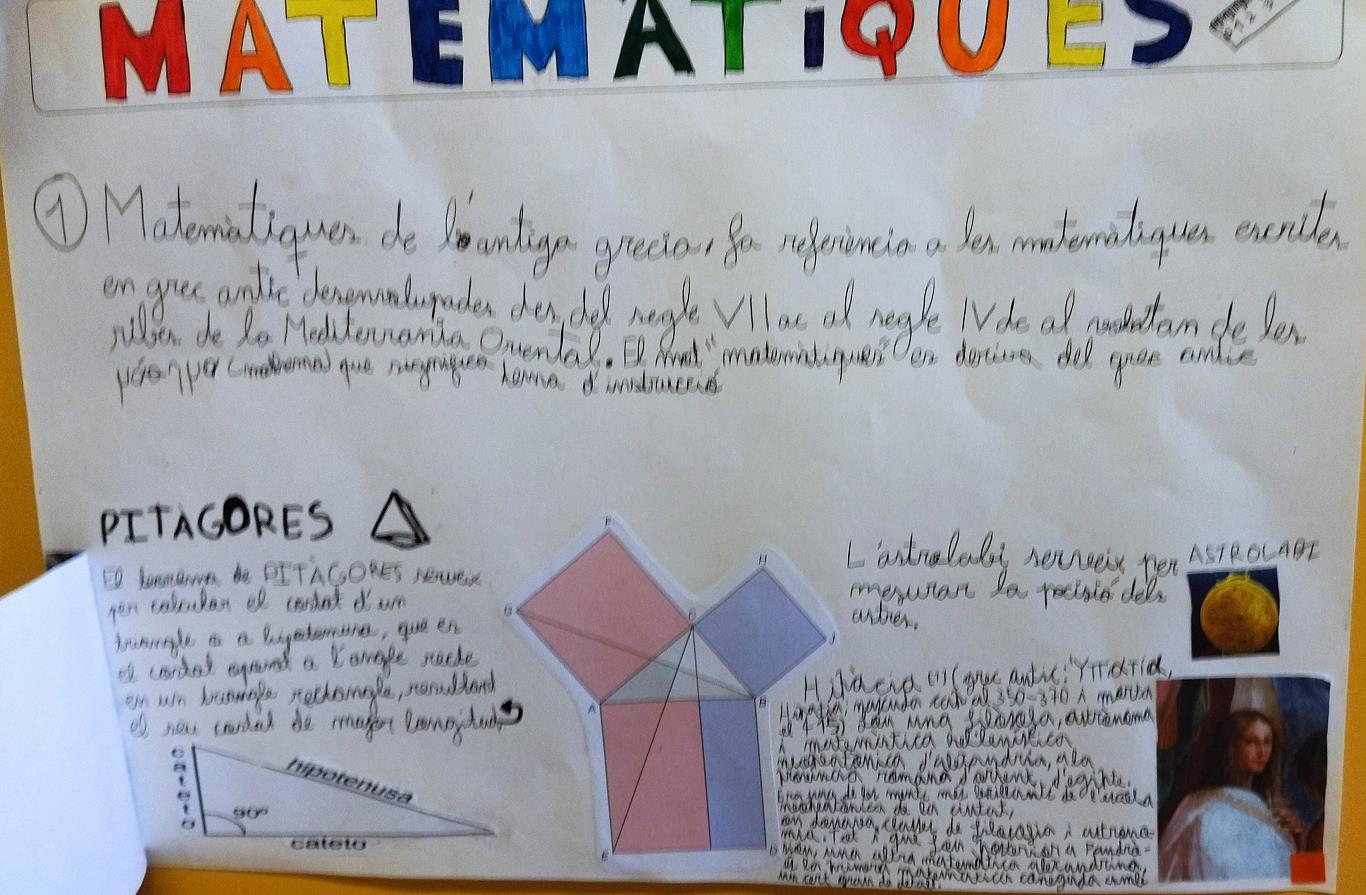 MATEMÀTIQUES
1 Matemàtiques de l'antiga grecia, fa referència a les matemàtiques escrites
en grec antic desenvolupades des del segle VII ac al segle IV dc al de les
ribes de la Mediterrania Oriental. El mot "matemàtiques" es deriva del grec antic
(mathema) que significa tema d'instrucció
PITÀGORES
El teorema de PITÀGORES serveix
per calcular el costat d'un
triangle o a hipotenusa, que es
el costat oposat a l'angle recte
en un triangle rectangle, resultant
el seu costat de major longitud.
cateto
hipotenusa
90º
cateto
F
H
G
C
J
A
B
E
D
L'astrolabi serveix per
mesurar la posició dels
astres.
ASTROLABI
Hipàcia (grec antic: Υπατία,
Hipatia, nascuda cap al 350-370 i morta
el 415) fou una filosofa, astrònoma
i matemàtica hel·lenística
neoplatònica d'alejandria, a la
província romana d'orient, d'egipte.
Era una de les ments més brillants de l'escola
neoplatònica de la ciutat,
on donava classes de filosofia i astrono-
mia. Tot i que fou posterior a Pandro-
sion, una altra matemàtica alexandrina,
es la primera matemàtica coneguda amb
un cert grau de detall.